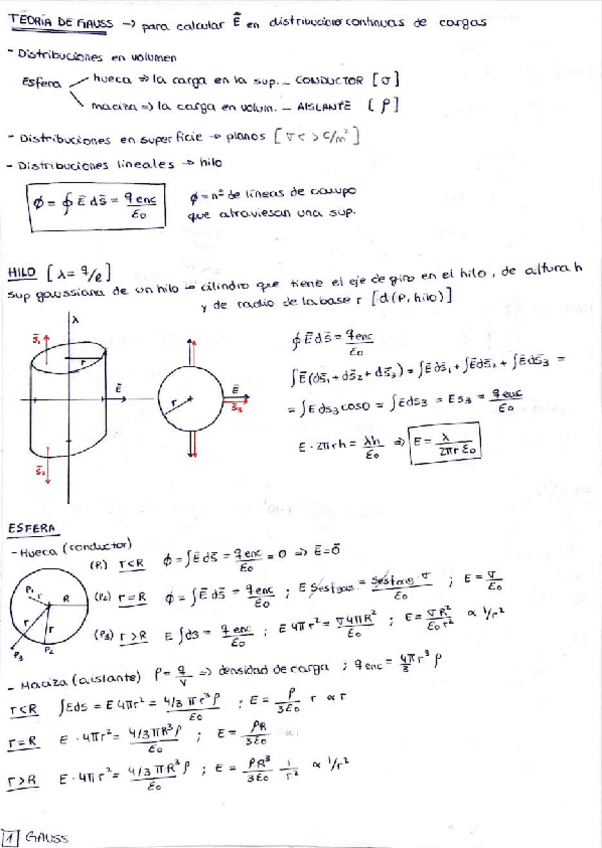 TEORIA DE GAUSS → para calcular Ē en distribuciones continuas de cargas
- Distribuciones en volumen
Esfera
hueca => la carga en la sup. - CONDUCTOR [σ]
maciza => la carga en volum. - AISLANTE [ρ]
- Distribuciones en superficie → planos [σ < > C/m²]
- Distribuciones lineales → hilo
Φ = ∮ Ē ds̄ = q enc / ε₀
Φ = nº de líneas de campo
que atraviesan una sup.
HILO [λ = q/l]
sup gaussiana de un hilo → cilindro que tiene el eje de giro en el hilo, de altura h
y de radio de la base r [d(P, hilo)]
λ
S̄₁
r
Ē
S̄₂
r
Ē
S̄₃
∮ Ē ds̄ = q enc / ε₀
∫ Ē (ds̄₁ + ds̄₂ + ds̄₃) = ∫ Ē ds̄₁ + ∫ Ē ds̄₂ + ∫ Ē ds̄₃ =
= ∫ E ds₃ cos0 = ∫ E ds₃ = E s₃ = q enc / ε₀
E · 2πrh = λh / ε₀ => E = λ / 2πr ε₀
ESFERA
- Hueca (conductor)
(P₁) r<R Φ = ∫ Ē ds̄ = q enc / ε₀ = 0 => Ē = 0̄
(P₂) r=R Φ = ∫ Ē ds̄ = q enc / ε₀ ; E Sest gas = Sest gas · σ / ε₀ ; E = σ / ε₀
(P₃) r>R E ∫ ds = q enc / ε₀ ; E 4πr² = σ 4πR² / ε₀ ; E = σR² / ε₀ r² ∝ 1/r²
P₁
r
R
r
r
P₃
P₂
- Maciza (aislante) ρ = q / V => densidad de carga ; q enc = 4π/3 r³ ρ
r<R ∫ E ds = E 4πr² = 4/3 πr³ρ / ε₀ ; E = ρ / 3ε₀ r ∝ r
r=R E · 4πr² = 4/3 πR³ρ / ε₀ ; E = ρR / 3ε₀
r>R E · 4πr² = 4/3 πR³ρ / ε₀ ; E = ρR³ / 3ε₀ 1 / r² ∝ 1/r²
1 GAUSS